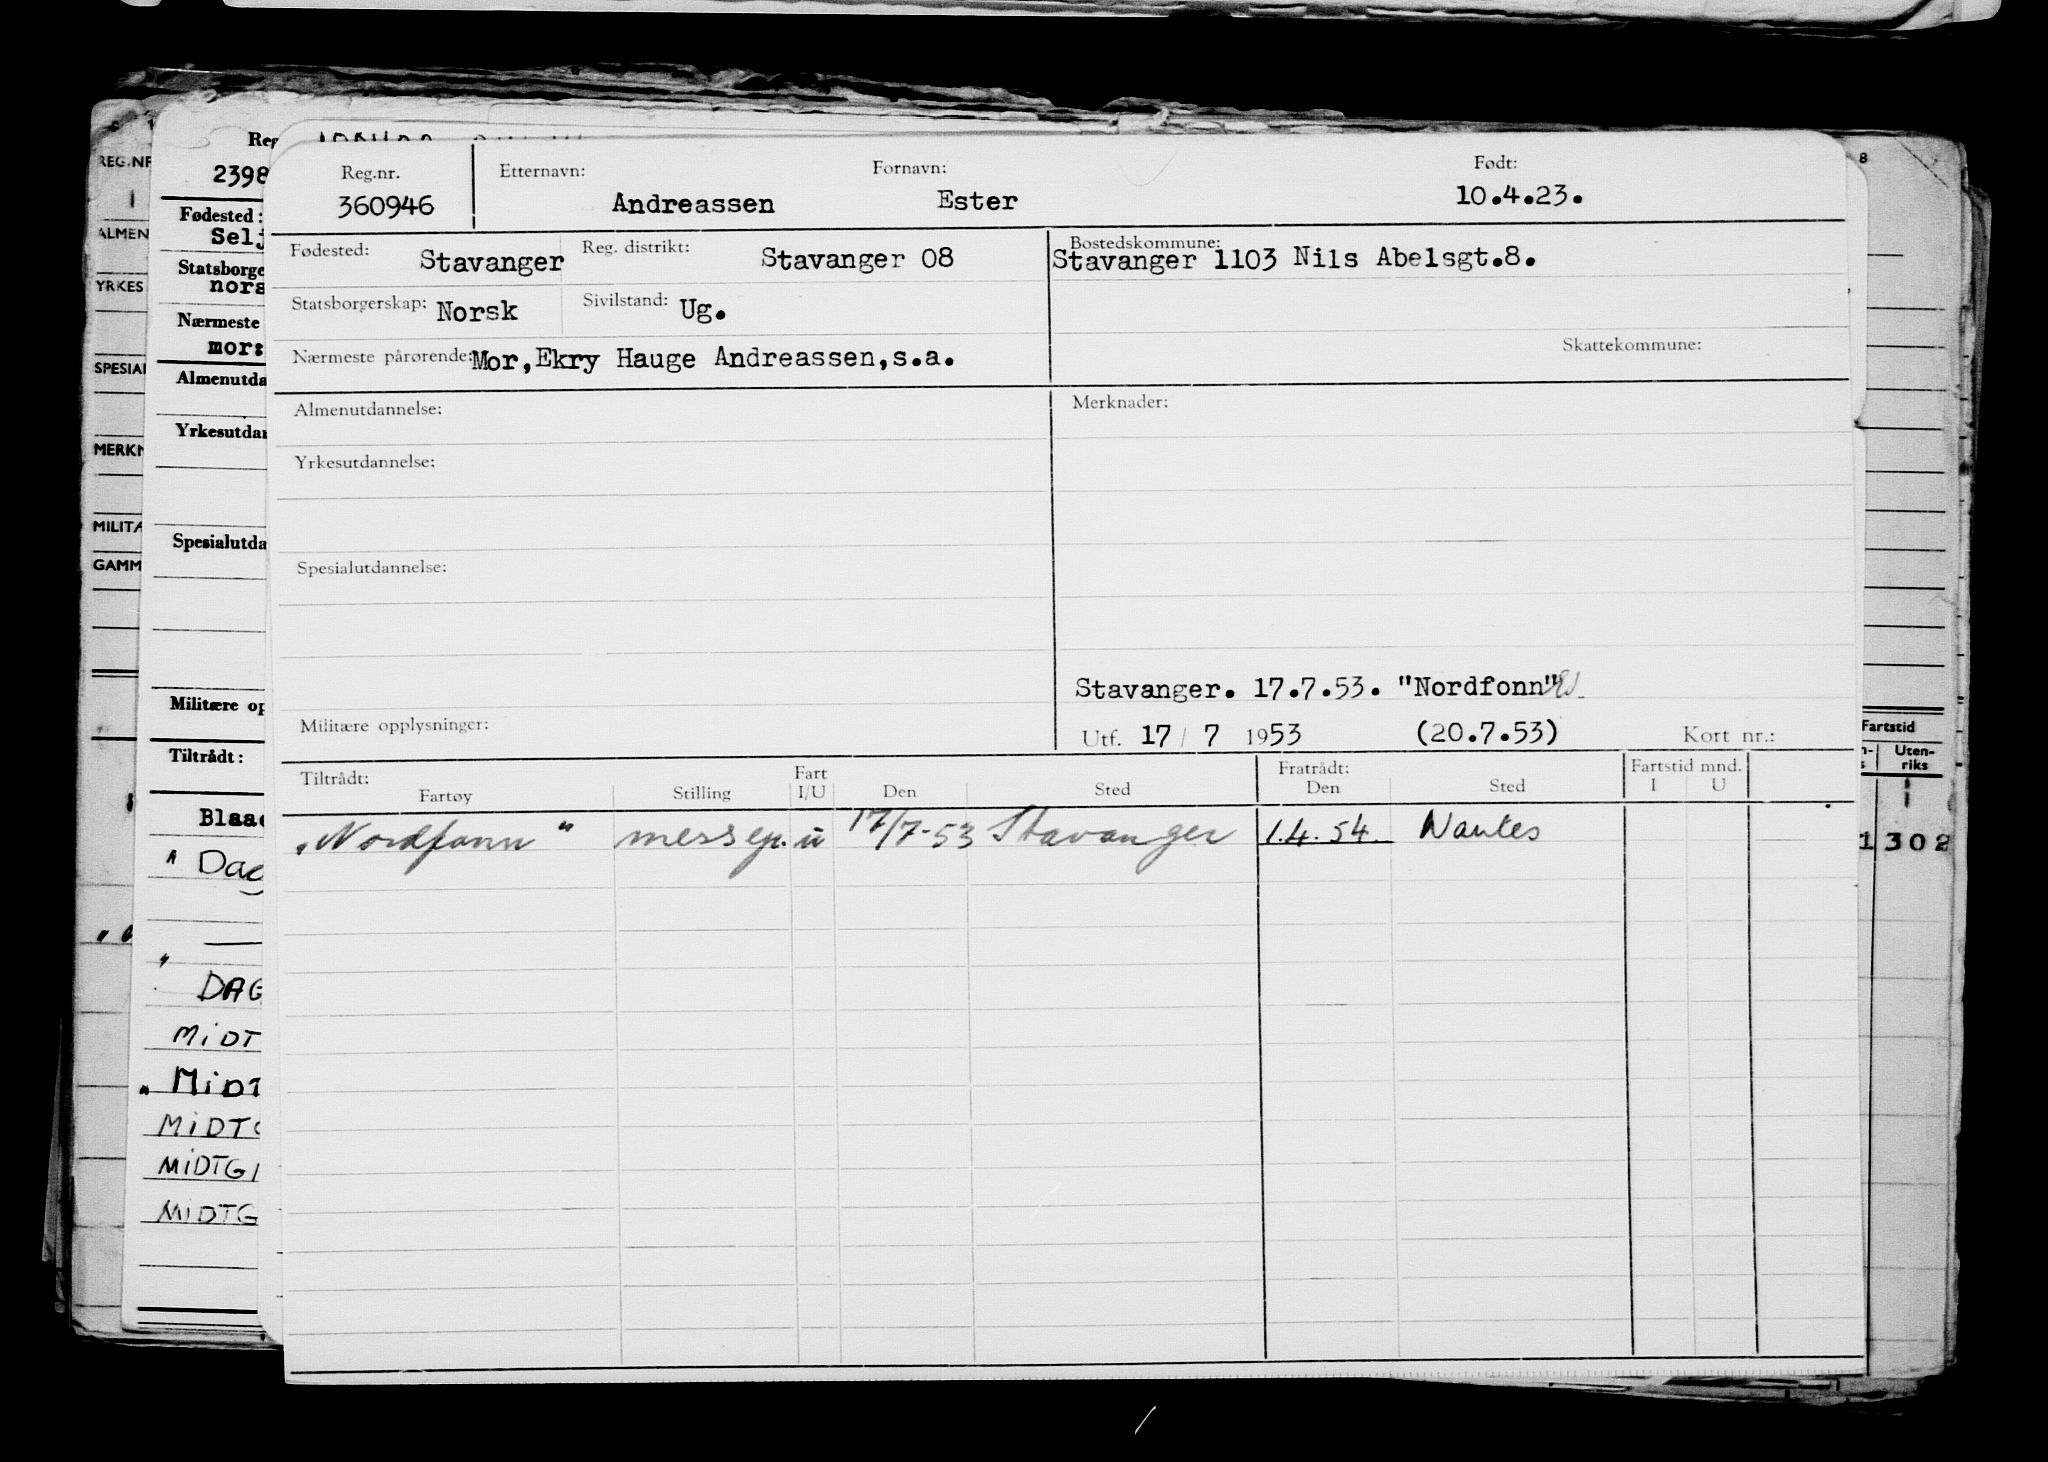 Reg.nr. Etternavn: Fornavn: Født:
360946 Andreassen Ester 10.4.23.
Fødested: Stavanger Reg. distrikt: Stavanger 08 Bostedskommune: Stavanger 1103 Nils Abelsgt.8.
Statsborgerskap: Norsk Sivilstand: Ug.
Nærmeste pårørende: Mor,Ekry Hauge Andreassen,s.a. Skattekommune:
Almenutdannelse: Merknader:
Yrkesutdannelse:
Spesialutdannelse:
Stavanger. 17.7.53. "Nordfonn"
Militære opplysninger: Utf. 17 / 7 1953 (20.7.53) Kort nr.:
Tiltrådt: Fart Fratrådt: Fartstid mnd.
Fartøy Stilling I/U Den Sted Den Sted I U
"Nordfonn" messep. u 17/7-53 Stavanger 1.4.54. Nantes
REG.NR
ALMEN
YRKES
SPESIAL
MERKN
MILITÆ
GAMM
Reg
2398
Fødested:
Selj
Statsborge
nors
Nærmeste
mors
Almenutda
Yrkesutdan
Spesialutda
Militære op
Tiltrådt:
Blaa
" Dag
"
DAG
MIDT
" MIDT
MIDTG
MIDTG
MIDTG
8
Fartstid
Uten-
riks
1 302